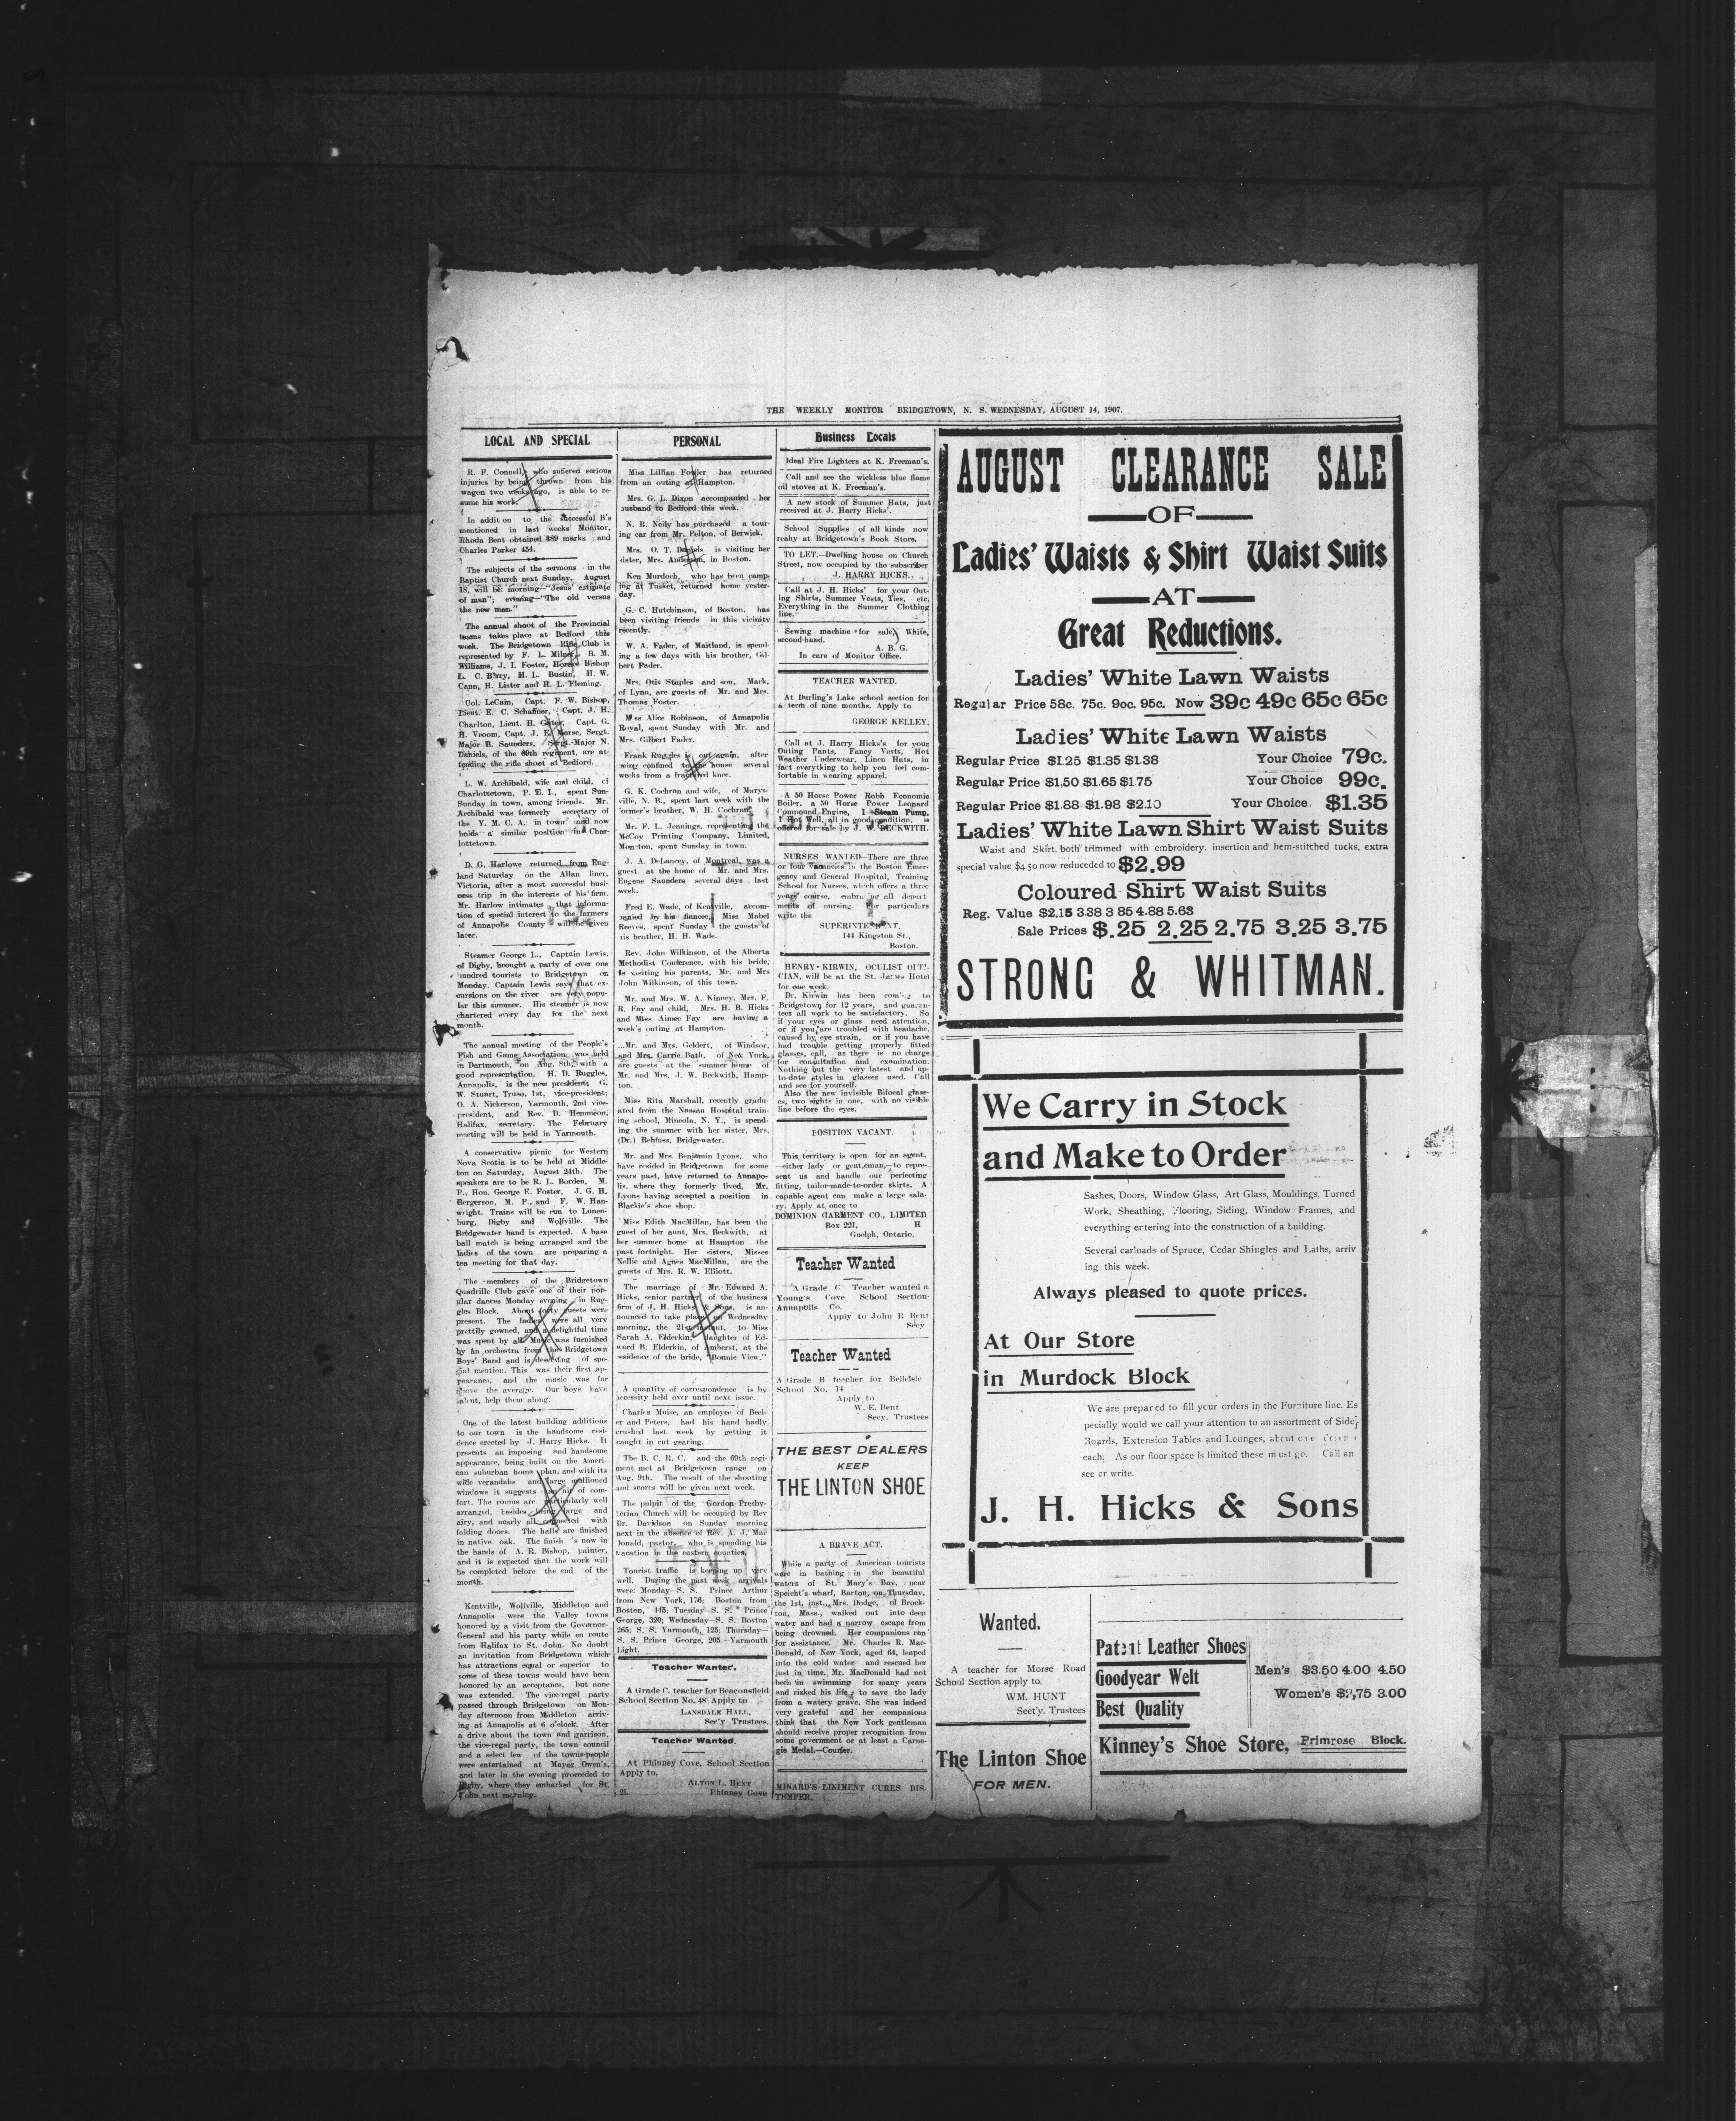 THE WEEKLY MONITOR BRIDGETOWN, N. S. WEDNESDAY, AUGUST 14, 1907.
LOCAL AND SPECIAL
R. F. Connell, who suffered serious
injuries by being thrown from his
wagon two weeks ago, is able to re-
sume his work.
In addit on to the successful B's
mentioned in last weeks Monitor,
Rhoda Bent obtained 489 marks and
Charles Parker 454.
The subjects of the sermons in the
Baptist Church next Sunday, August
18, will be: morning—"Jesus' estimate
of man"; evening—"The old versus
the new man."
The annual shoot of the Provincial
teams takes place at Bedford this
week. The Bridgetown Rifle Club is
represented by F. L. Milner, B. M.
Williams, J. I. Foster, Horace Bishop
L. C. Barry, H. L. Bustin, H. W.
Cann, H. Lister and H. L. Fleming.
Col. LeCain, Capt. F. W. Bishop,
Lieut. E. C. Schaffner, Capt. J. H.
Charlton, Lieut. H. Gates, Capt. G.
H. Vroom, Capt. J. E. Morse, Sergt.
Major B. Saunders, Sergt.-Major N.
Daniels, of the 69th regiment, are at-
tending the rifle shoot at Bedford.
L. W. Archibald, wife and child, of
Charlottetown, P. E. I., spent Sun-
Sunday in town, among friends. Mr.
Archibald was formerly secretary of
the Y. M. C. A. in town and now
holds a similar position in Char-
lottetown.
D. G. Harlowe returned from Eng-
land Saturday on the Allan liner,
Victoria, after a most successful busi-
ness trip in the interests of his firm.
Mr. Harlow intimates that informa-
tion of special interest to the farmers
of Annapolis County will be given
later.
Steamer George L., Captain Lewis,
of Digby, brought a party of over one
hundred tourists to Bridgetown on
Monday. Captain Lewis says that ex-
cursions on the river are very popu-
lar this summer. His steamer is now
chartered every day for the next
month.
The annual meeting of the People's
Fish and Game Association was held
in Dartmouth, on Aug. 8th, with a
good representation. H. D. Ruggles,
Annapolis, is the new president; G.
W. Stuart, Truro, 1st, vice-president;
O. A. Nickerson, Yarmouth, 2nd vice-
president, and Rev. D. Hemmeon,
Halifax, secretary. The February
meeting will be held in Yarmouth.
A conservative picnic for Western
Nova Scotia is to be held at Middle-
ton on Saturday, August 24th. The
speakers are to be R. L. Borden, M.
P., Hon. George E. Foster, J. G. H.
Bergerson, M. P., and F. W. Han-
wright. Trains will be run to Lunen-
burg, Digby and Wolfville. The
Bridgewater band is expected. A base
ball match is being arranged and the
ladies of the town are preparing a
tea meeting for that day.
The members of the Bridgetown
Quadrille Club gave one of their pop-
ular dances Monday evening in Rug-
gles Block. About forty guests were
present. The ladies were all very
prettily gowned, and a delightful time
was spent by all. Music was furnished
by an orchestra from the Bridgetown
Boys' Band and is deserving of spe-
cial mention. This was their first ap-
pearance, and the music was far
above the average. Our boys have
talent, help them along.
One of the latest building additions
to our town is the handsome resi-
dence erected by J. Harry Hicks. It
presents an imposing and handsome
appearance, being built on the Ameri-
can suburban home plan, and with its
wide verandahs and large mullioned
windows it suggests an air of com-
fort. The rooms are particularly well
arranged, besides being large and
airy, and nearly all connected with
folding doors. The halls are finished
in native oak. The finish 's now in
the hands of A. R. Bishop, painter,
and it is expected that the work will
be completed before the end of the
month.
Kentville, Wolfville, Middleton and
Annapolis were the Valley towns
honored by a visit from the Governor-
General and his party while en route
from Halifax to St. John. No doubt
an invitation from Bridgetown which
has attractions equal or superior to
some of these towns would have been
honored by an acceptance, but none
was extended. The vice-regal party
passed through Bridgetown on Mon-
day afternoon from Middleton arriv-
ing at Annapolis at 6 o'clock. After
a drive about the town and garrison,
the vice-regal party, the town council
and a select few of the towns-people
were entertained at Mayor Owen's,
and later in the evening proceeded to
Digby, where they embarked for St.
John next morning.
PERSONAL
Miss Lillian Fowler has returned
from an outing at Hampton.
Mrs. G. L. Dixon accompanied her
husband to Bedford this week.
N. R. Neily has purchased a tour-
ing car from Mr. Pelton, of Berwick.
Mrs. O. T. Daniels is visiting her
sister, Mrs. Anderson, in Boston.
Ken Murdoch, who has been camp-
ing at Tusket, returned home yester-
day.
G. C. Hutchinson, of Boston, has
been visiting friends in this vicinity
recently.
W. A. Fader, of Maitland, is spend-
ing a few days with his brother, Gil-
bert Fader.
Mrs. Otis Staples and son, Mark,
of Lynn, are guests of Mr. and Mrs.
Thomas Foster.
Miss Alice Robinson, of Annapolis
Royal, spent Sunday with Mr. and
Mrs. Gilbert Fader.
Frank Ruggles is out again, after
being confined to the house several
weeks from a fractured knee.
G. K. Cochran and wife, of Marys-
ville, N. B., spent last week with the
former's brother, W. H. Cochran.
Mr. F. L. Jennings, representing the
McCoy Printing Company, Limited,
Moncton, spent Sunday in town.
J. A. DeLancey, of Montreal, was a
guest at the home of Mr. and Mrs.
Eugene Saunders several days last
week.
Fred E. Wade, of Kentville, accom-
panied by his fiancee, Miss Mabel
Reeves, spent Sunday the guests of
his brother, H. H. Wade.
Rev. John Wilkinson, of the Alberta
Methodist Conference, with his bride,
is visiting his parents, Mr. and Mrs
John Wilkinson, of this town.
Mr. and Mrs. W. A. Kinney, Mrs. F.
R. Fay and child, Mrs. H. B. Hicks
and Miss Aimee Fay are having a
week's outing at Hampton.
Mr. and Mrs. Geldert, of Windsor,
and Mrs. Carrie Bath, of New York,
are guests at the summer home of
Mr. and Mrs. J. W. Beckwith, Hamp-
ton.
Miss Rita Marshall, recently gradu-
ated from the Nassau Hospital train-
ing school, Mineola, N. Y., is spend-
ing the summer with her sister, Mrs.
(Dr.) Rehfuss, Bridgewater.
Mr. and Mrs. Benjamin Lyons, who
have resided in Bridgetown for some
years past, have returned to Annapo-
lis, where they formerly lived, Mr.
Lyons having accepted a position in
Blackie's shoe shop.
Miss Edith MacMillan, has been the
guest of her aunt, Mrs. Beckwith, at
her summer home at Hampton the
past fortnight. Her sisters, Misses
Nellie and Agnes MacMillan, are the
guests of Mrs. R. W. Elliott.
The marriage of Mr. Edward A.
Hicks, senior partner of the business
firm of J. H. Hicks & Sons, is an-
nounced to take place on Wednesday
morning, the 21st instant, to Miss
Sarah A. Elderkin, daughter of Ed-
ward B. Elderkin, of Amherst, at the
residence of the bride, "Bonnie View."
A quantity of correspondence is by
necessity held over until next issue.
Charles Muise, an employee of Beel-
er and Peters, had his hand badly
crushed last week by getting it
caught in cut gearing.
The B. C. R. C. and the 69th regi-
ment met at Bridgetown range on
Aug. 9th. The result of the shooting
and scores will be given next week.
The pulpit of the Gordon Presby-
terian Church will be occupied by Rev
Dr. Davidson on Sunday morning
next in the absence of Rev. A. J. Mac
Donald, pastor, who is spending his
vacation in the eastern counties.
Tourist traffic is keeping up very
well. During the past week arrivals
were: Monday—S. S. Prince Arthur
from New York, 176; Boston from
Boston, 445; Tuesday—S. S. Prince
George, 320; Wednesday—S. S. Boston
265; S. S. Yarmouth, 125; Thursday—
S. S. Prince George, 205.—Yarmouth
Light.
Teacher Wanted.
A Grade C. teacher for Beaconsfield
School Section No. 48 Apply to
LANSDALE HALL,
Sec'y Trustees.
Teacher Wanted.
At Phinney Cove, School Section
Apply to,
ALTON L. BENT
Phinney Cove
Business Locals
Ideal Fire Lighters at K. Freeman's.
Call and see the wickless blue flame
oil stoves at K. Freeman's.
A new stock of Summer Hats, just
received at J. Harry Hicks'.
School Supplies of all kinds now
ready at Bridgetown's Book Store.
TO LET.—Dwelling house on Church
Street, now occupied by the subscriber
J. HARRY HICKS.
Call at J. H. Hicks' for your Out-
ing Shirts, Summer Vests, Ties, etc.
Everything in the Summer Clothing
line.
Sewing machine for sale, White,
second-hand.
A. B. G.
In care of Monitor Office.
TEACHER WANTED.
At Durling's Lake school section for
a term of nine months. Apply to
GEORGE KELLEY.
Call at J. Harry Hicks's for your
Outing Pants, Fancy Vests, Hot
Weather Underwear, Linen Hats, in
fact everything to help you feel com-
fortable in wearing apparel.
A 50 Horse Power Robb Economic
Boiler, a 50 Horse Power Leonard
Compound Engine, 1 Steam Pump,
1 Hot Well, all in good condition, is
offered for sale by J. W. BECKWITH.
NURSES WANTED—There are three
or four Vacancies in the Boston Emer-
gency and General Hospital, Training
School for Nurses, which offers a three
years' course, embracing all depart
ments of nursing. For particulars
write the
SUPERINTENDENT,
144 Kingston St.,
Boston.
HENRY KIRWIN, OCULIST OPTI-
CIAN, will be at the St. James Hotel
for one week.
Dr. Kirwin has been coming to
Bridgetown for 12 years, and guaran-
tees all work to be satisfactory. So
if your eyes or glass need attention,
or if you are troubled with headache,
caused by eye strain, or if you have
had trouble getting properly fitted
glasses, call, as there is no charge
for consultation and examination.
Nothing but the very latest and up-
to-date styles in glasses used. Call
and see for yourself.
Also the new invisible Bifocal glass-
es, two sights in one, with no visible
line before the eyes.
POSITION VACANT.
This territory is open for an agent,
—either lady or gent.eman,—to repre-
sent us and handle our perfecting
fitting, tailor-made-to-order skirts. A
capable agent can make a large sala-
ry. Apply at once to
DOMINION GARMENT CO., LIMITED
Box 221, H
Guelph, Ontario.
Teacher Wanted
A Grade C Teacher wanted a
Young's Cove School Section
Annapolis Co.
Apply to John R Bent
Secy
Teacher Wanted
A Grade B teacher for Belleisle
School No. 14
Apply to
W. E. Bent
Secy. Trustees
THE BEST DEALERS
KEEP
THE LINTON SHOE
A BRAVE ACT.
While a party of American tourists
were in bathing in the beautiful
waters of St. Mary's Bay, near
Speicht's wharf, Barton, on Thursday,
the 1st, inst., Mrs. Dodge, of Brock-
ton, Mass., walked out into deep
water and had a narrow escape from
being drowned. Her companions ran
for assistance. Mr. Charles R. Mac-
Donald, of New York, aged 64, leaped
into the cold water and rescued her
just in time. Mr. MacDonald had not
been in swimming for many years
and risked his life to save the lady
from a watery grave. She was indeed
very grateful and her companions
think that the New York gentleman
should receive proper recognition from
some government or at least a Carne-
gie Medal.—Courier.
MINARD'S LINIMENT CURES DIS-
TEMPER.
AUGUST CLEARANCE SALE
OF
Ladies' Waists & Shirt Waist Suits
AT
Great Reductions.
Ladies' White Lawn Waists
Regular Price 58c. 75c. 90c. 95c. Now 39c 49c 65c 65c
Ladies' White Lawn Waists
Regular Price $1.25 $1.35 $1.38 Your Choice 79c.
Regular Price $1,50 $1.65 $1 75 Your Choice 99c.
Regular Price $1.88 $1.98 $2.10 Your Choice $1.35
Ladies' White Lawn Shirt Waist Suits
Waist and Skirt. both trimmed with embroidery. insertion and hem-stitched tucks, extra
special value $4.50 now reduced to $2.99
Coloured Shirt Waist Suits
Reg. Value $2.15 3.38 3 85 4.88 5.63
Sale Prices $.25 2.25 2.75 3.25 3.75
STRONG & WHITMAN.
We Carry in Stock
and Make to Order
Sashes, Doors, Window Glass, Art Glass, Mouldings, Turned
Work, Sheathing, Flooring, Siding, Window Frames, and
everything entering into the construction of a building.
Several carloads of Spruce, Cedar Shingles and Laths, arriv
ing this week.
Always pleased to quote prices.
At Our Store
in Murdock Block
We are prepared to fill your orders in the Furniture line. Es
pecially would we call your attention to an assortment of Side
Boards, Extension Tables and Lounges, about one dozen
each. As our floor space is limited these must go. Call an
see or write.
J. H. Hicks & Sons
Wanted.
A teacher for Morse Road
School Section apply to
WM. HUNT
Sect'y. Trustees
The Linton Shoe
FOR MEN.
Patent Leather Shoes
Goodyear Welt
Best Quality
Men's $3.50 4.00 4.50
Women's $2,75 3.00
Kinney's Shoe Store, Primrose Block.